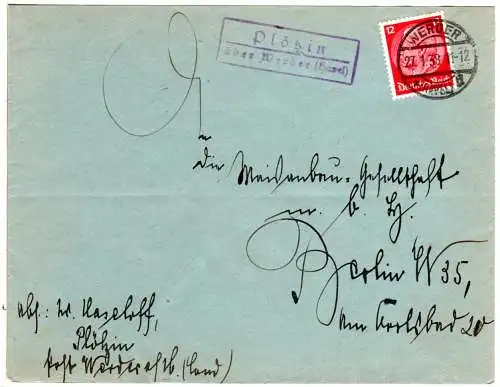 Plötzin
über Werder (Havel)
12
Deutsches Reich
WERDER
27.1.38
-12
(HAVEL)
An
die Meisenbau-Gesellschaft
m. b. H.
Berlin W35,
Am Karlsbad 20
Abs: W.
Plötzin
Post Werder a/H. (Land)